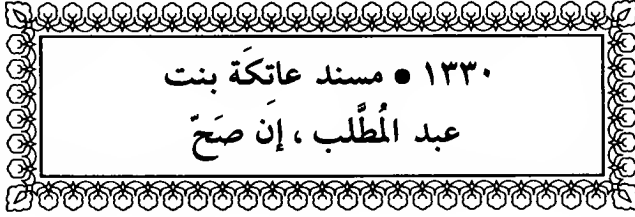 ١٣٣٠ • مسند عاتكَة بنت
عبد المُطَّلب ، إن صَحّ